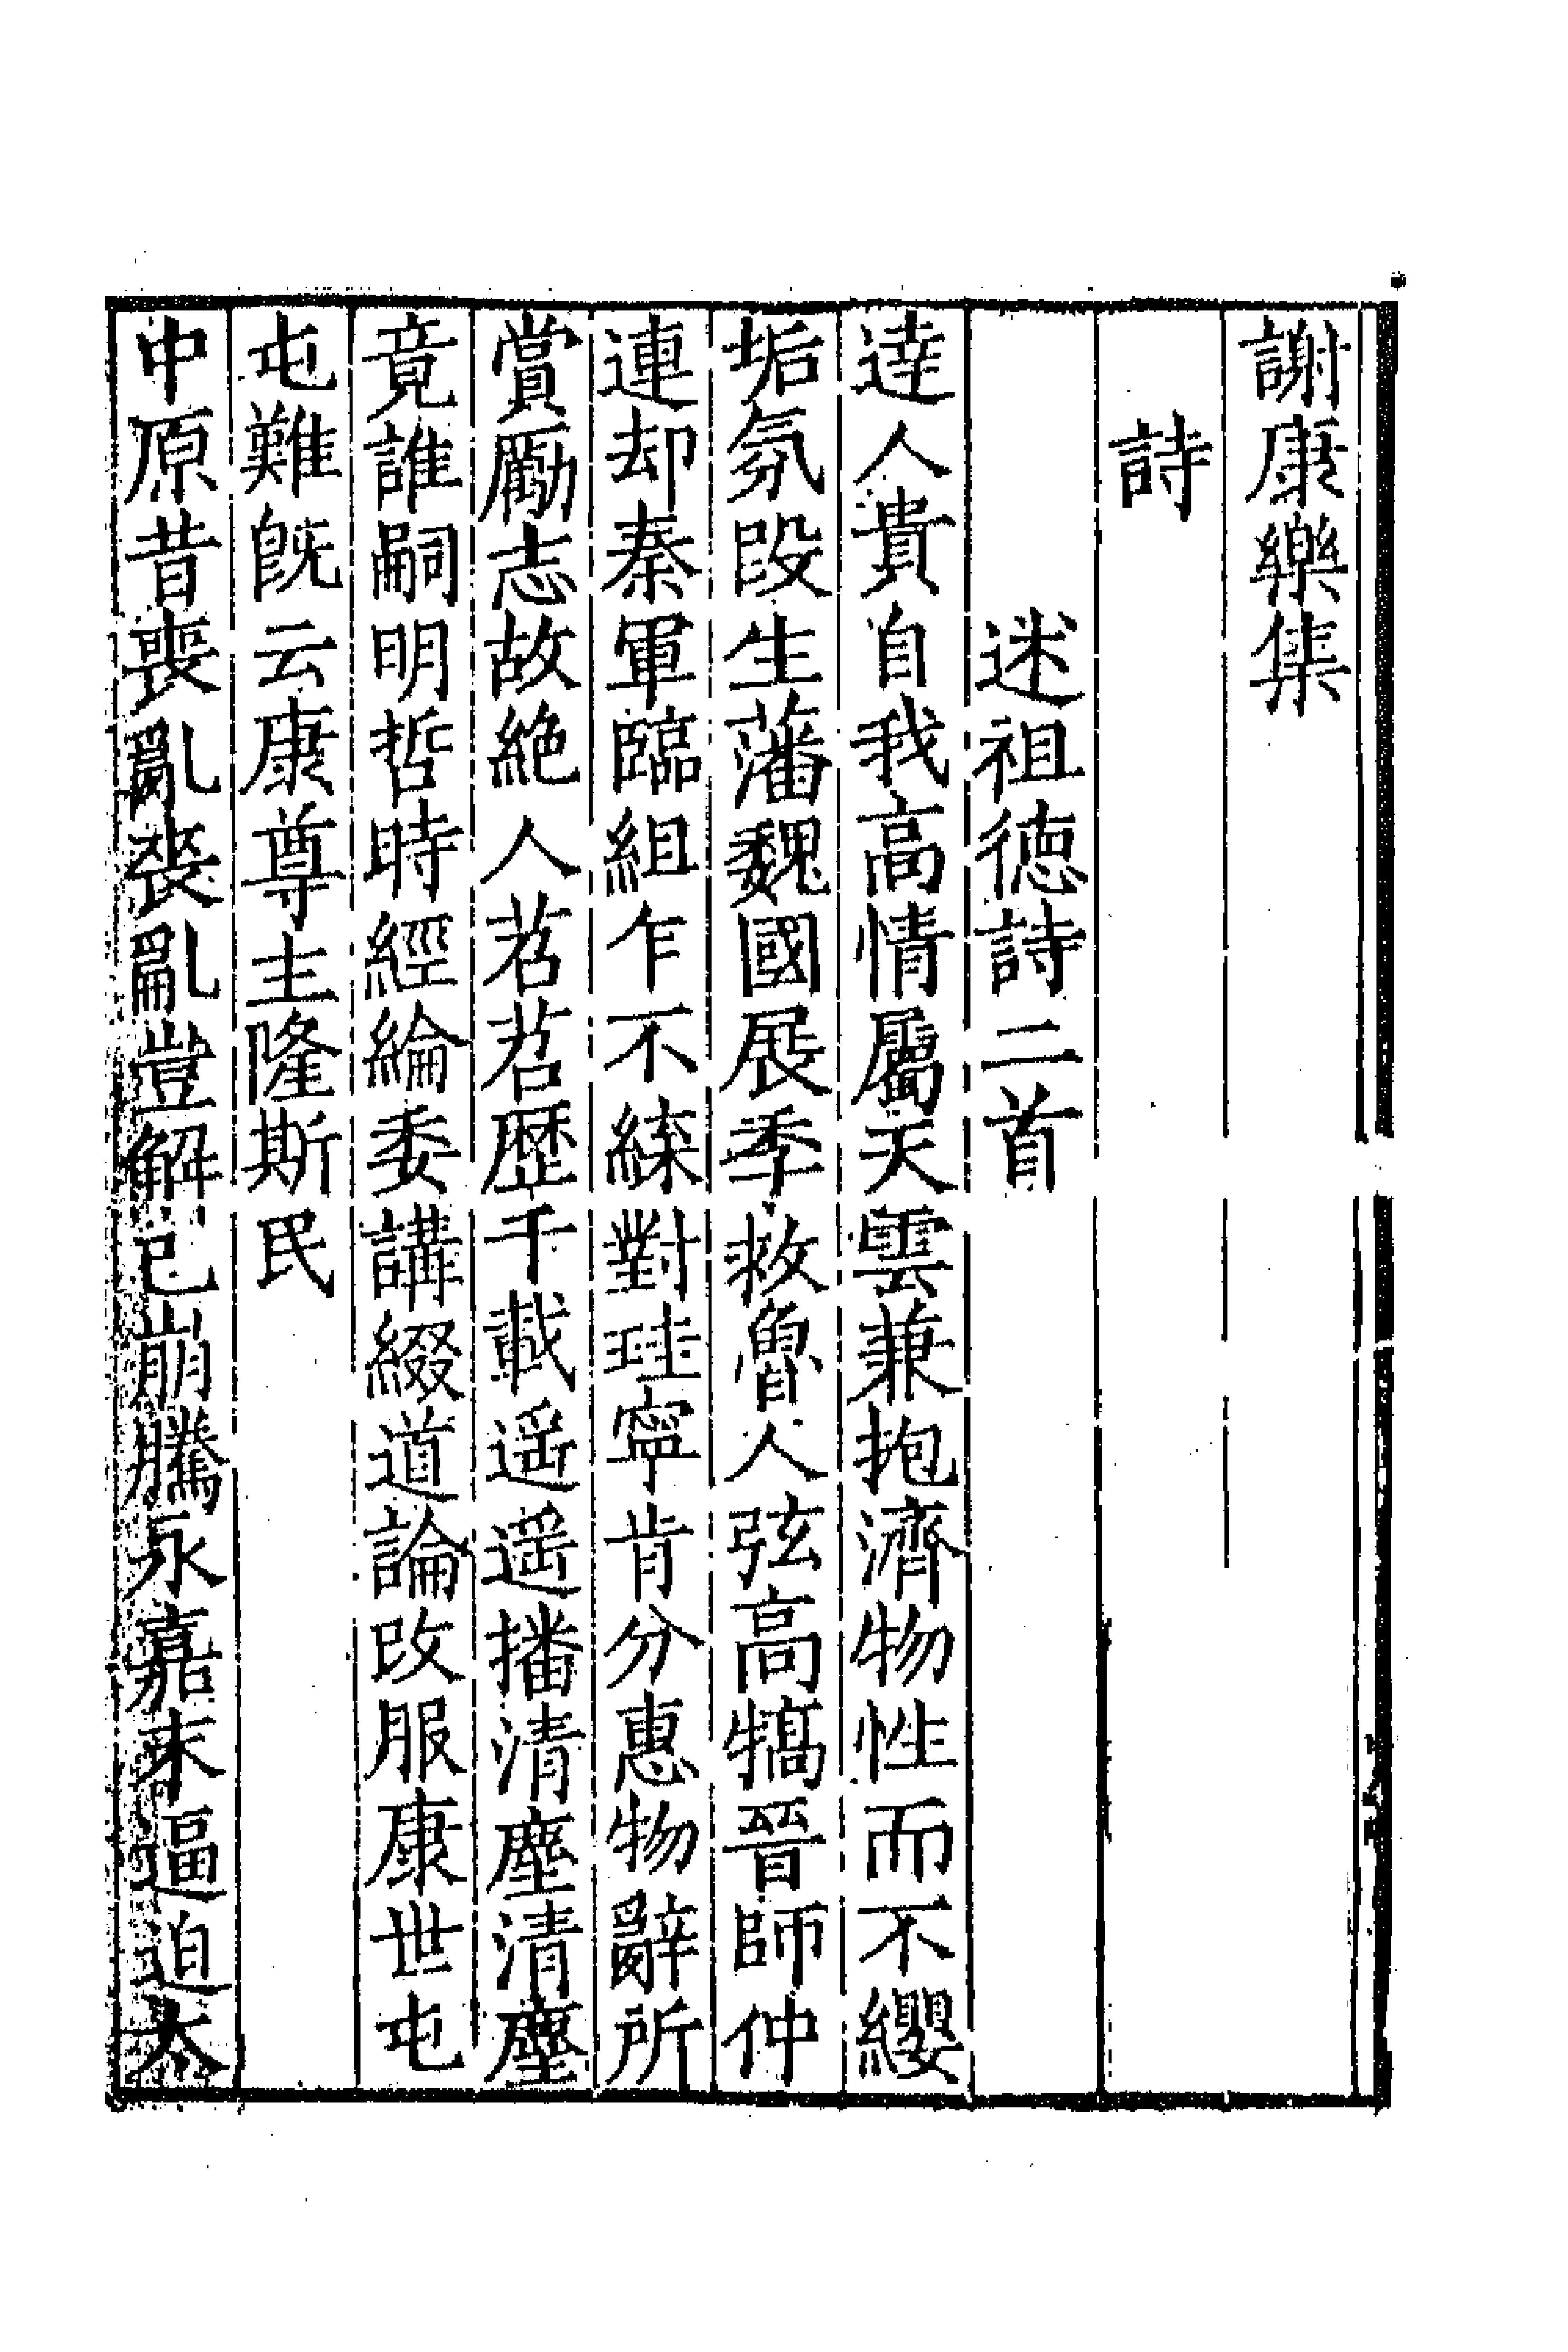 謝康樂集
詩
迷祖德詩二首
達人貴自我高情屬天雲兼抱濟物性而不纓
垢氛段生藩魏國展季救魯人弦高犒晉師仲
連却秦軍臨組乍不緤對珪寧肯分惠物辭所
賞勵志故絶人苕苕歷千載遥遥播清塵清塵
竟誰嗣明哲時經綸委講綴道論改服康世屯
屯難旣云康尊主隆斯民
中原昔喪亂喪亂豈解已崩騰永嘉末逼迫太